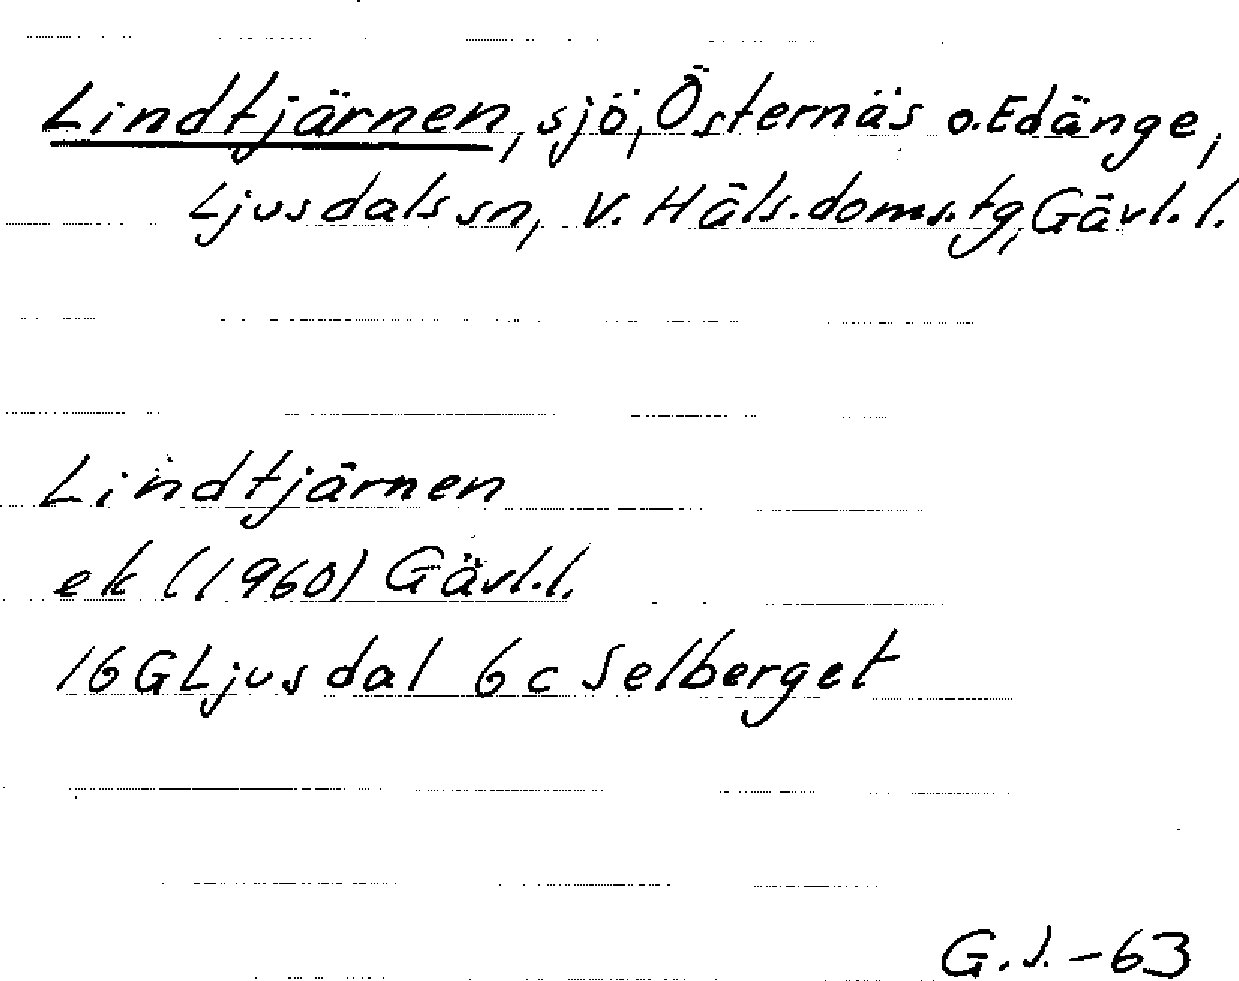 Lindtjärnen, sjö, Östernäs o. Edänge,
Ljusdals sn, V. Häls. doms. tg, Gävl. l.
Lindtjärnen
ek (1960) Gävl. l.
16 G Ljusdal 6 c Selberget
G. J. - 63